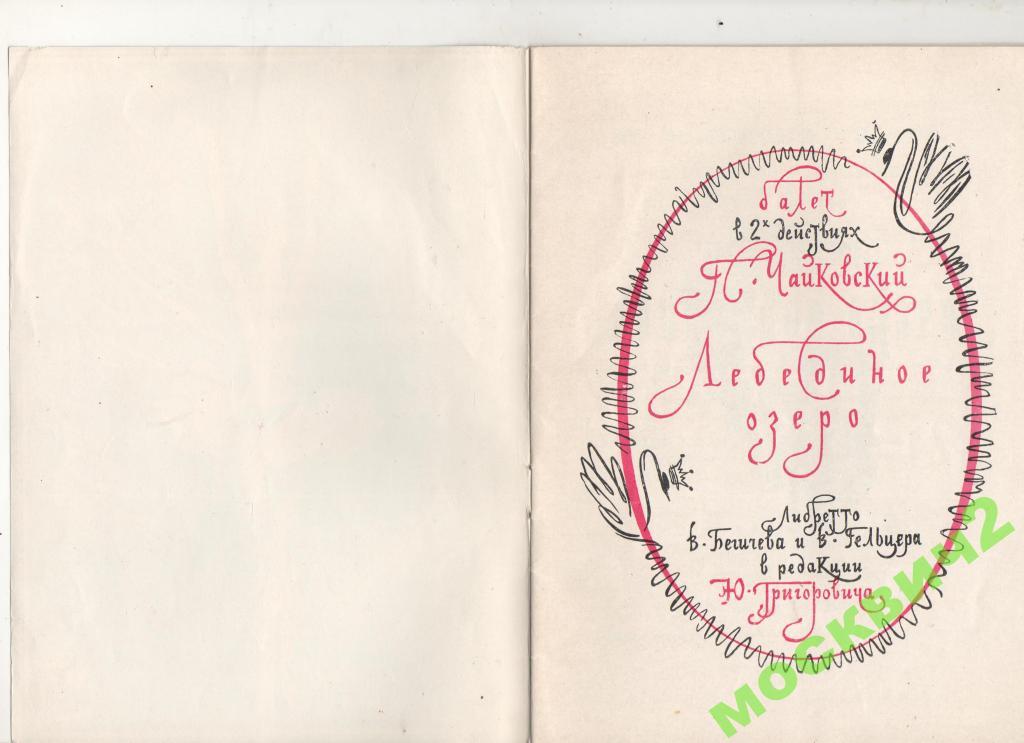 балет
в 2х действиях
П. Чайковский
Лебединое
озеро
либретто
В. Бегичева и В. Гельцера
в редакции
Ю. Григоровича
москвич2